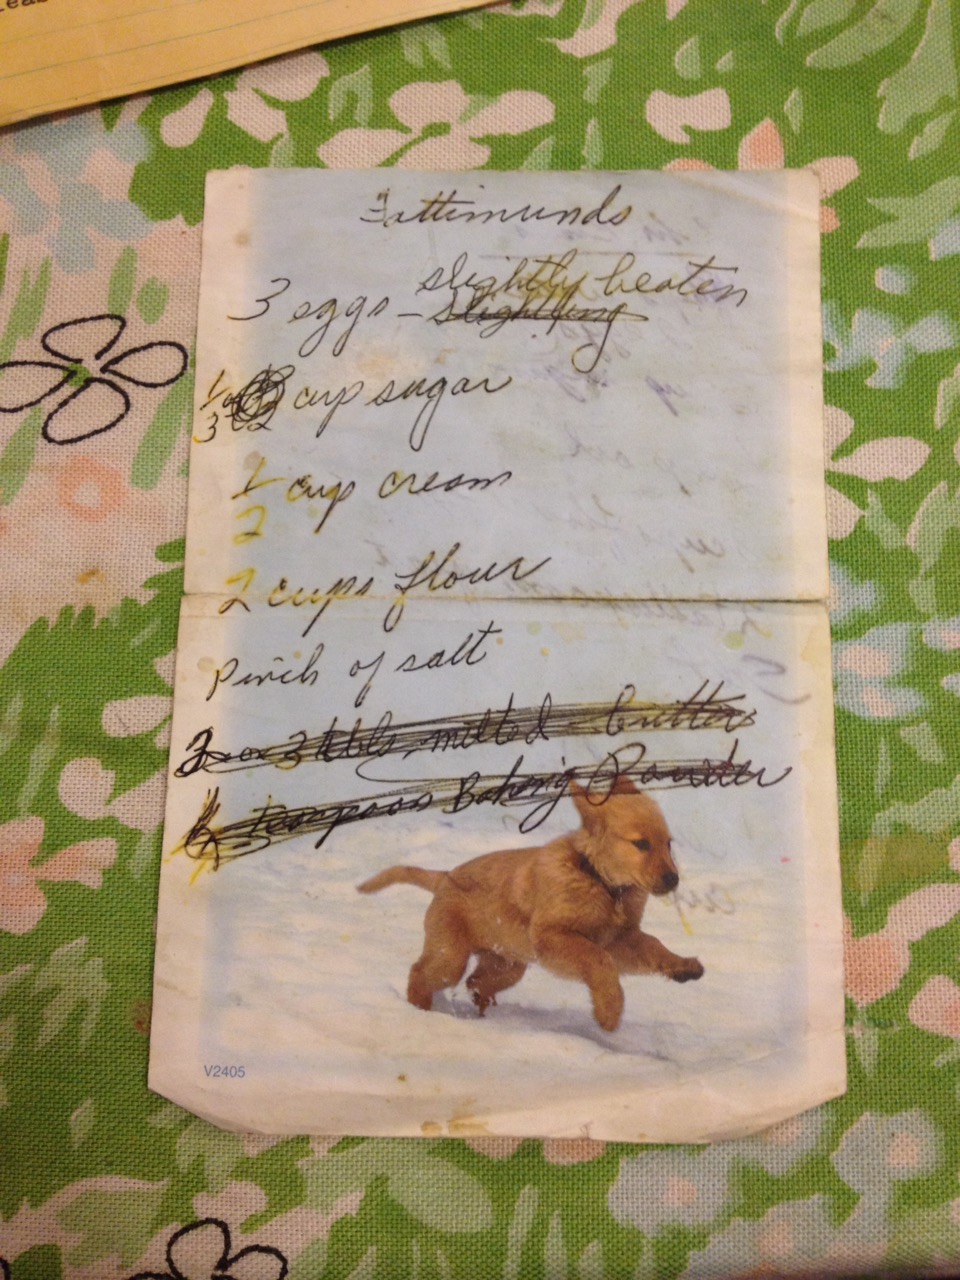 Fattimunds
slightly beaten
3 eggs –
1/3 cup sugar
1/2 cup cream
2 cups flour
Pinch of salt
2 or 3 tbls. melted butter
teaspoon Baking Powder
V2405